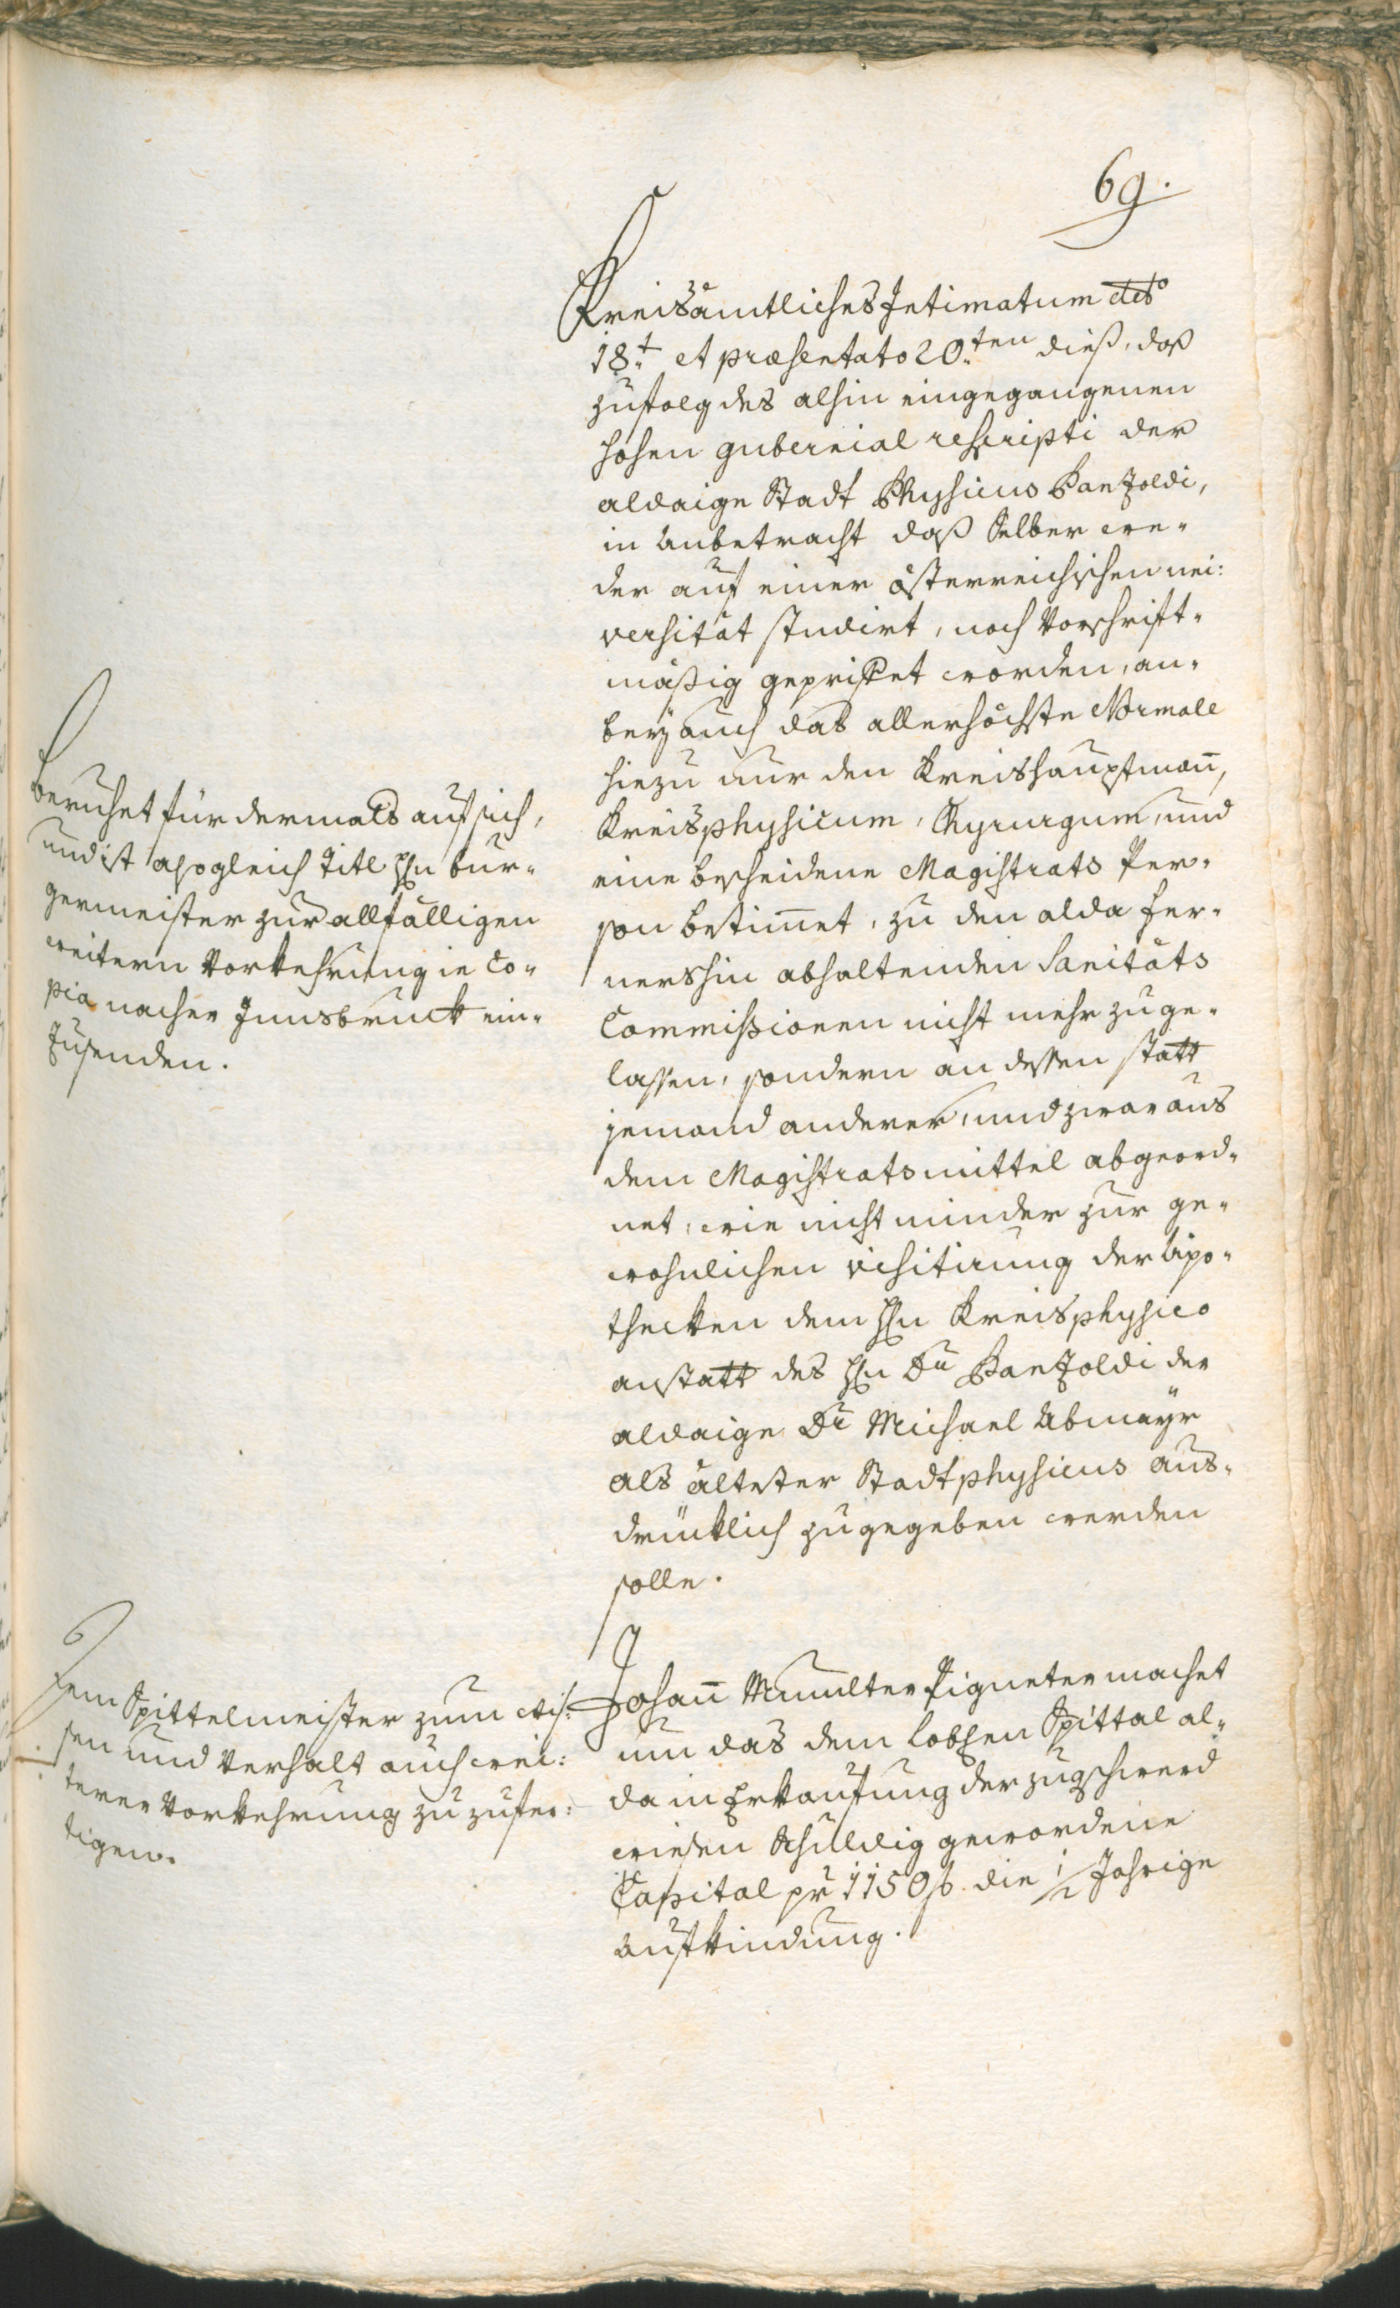 69.
Kreisamtliches Intimatum dto
18t et præsentato 20ten dieß, daß
zufolg des alhin eingegangenen
hohen gubernial rescripti der
aldaige Stadt Physicus Panzoldi,
in Anbetracht daß Selber we-
der auf einer österreichischen uni:
versität studirt, noch Vorschrift-
mäßig geprüfet worden, an-
bey auch das allerhöchste Normale
hiezu nur den Kreishauptmañ,
Kreisphysicum, Chyrurgum, und
eine bescheidene Magistrats Per-
son bestimet, zu den alda fer-
nershin abhaltenden Sanitäts
Commissionen nicht mehr zuge-
lassen, sondern an dessen statt
jemand anderer, und zwar aus
dem Magistratsmittel abgeord-
net, wie nicht minder zur ge-
wohnlichen visitirung der Apo-
thecken dem Hn Kreisphysico
anstatt des Hn Dr Panzoldi der
aldaige Dr Michael Abmayr
als ältester Stadtphysicus aus-
drücklich zugegeben werden
solle.
beruhet für dermals auf sich,
und ist asogleich Titl Hn bur-
germeister zur allfälligen
weitern Vorkehrung in Co-
pia nacher Innsbruck ein-
zusenden.
Johañ Pigneter machet
um das dem lobhen Spittal al-
da in Erkaufung der zugschwerd
wiesen schuldig gewordene
Capital pr 1150 f die 1/2 Jahrige
Aufkindung.
Dem Spittelmeister zum wis:
sen und Verhalt auch wei:
terer Vorkehrung zu zufer:
tigen.